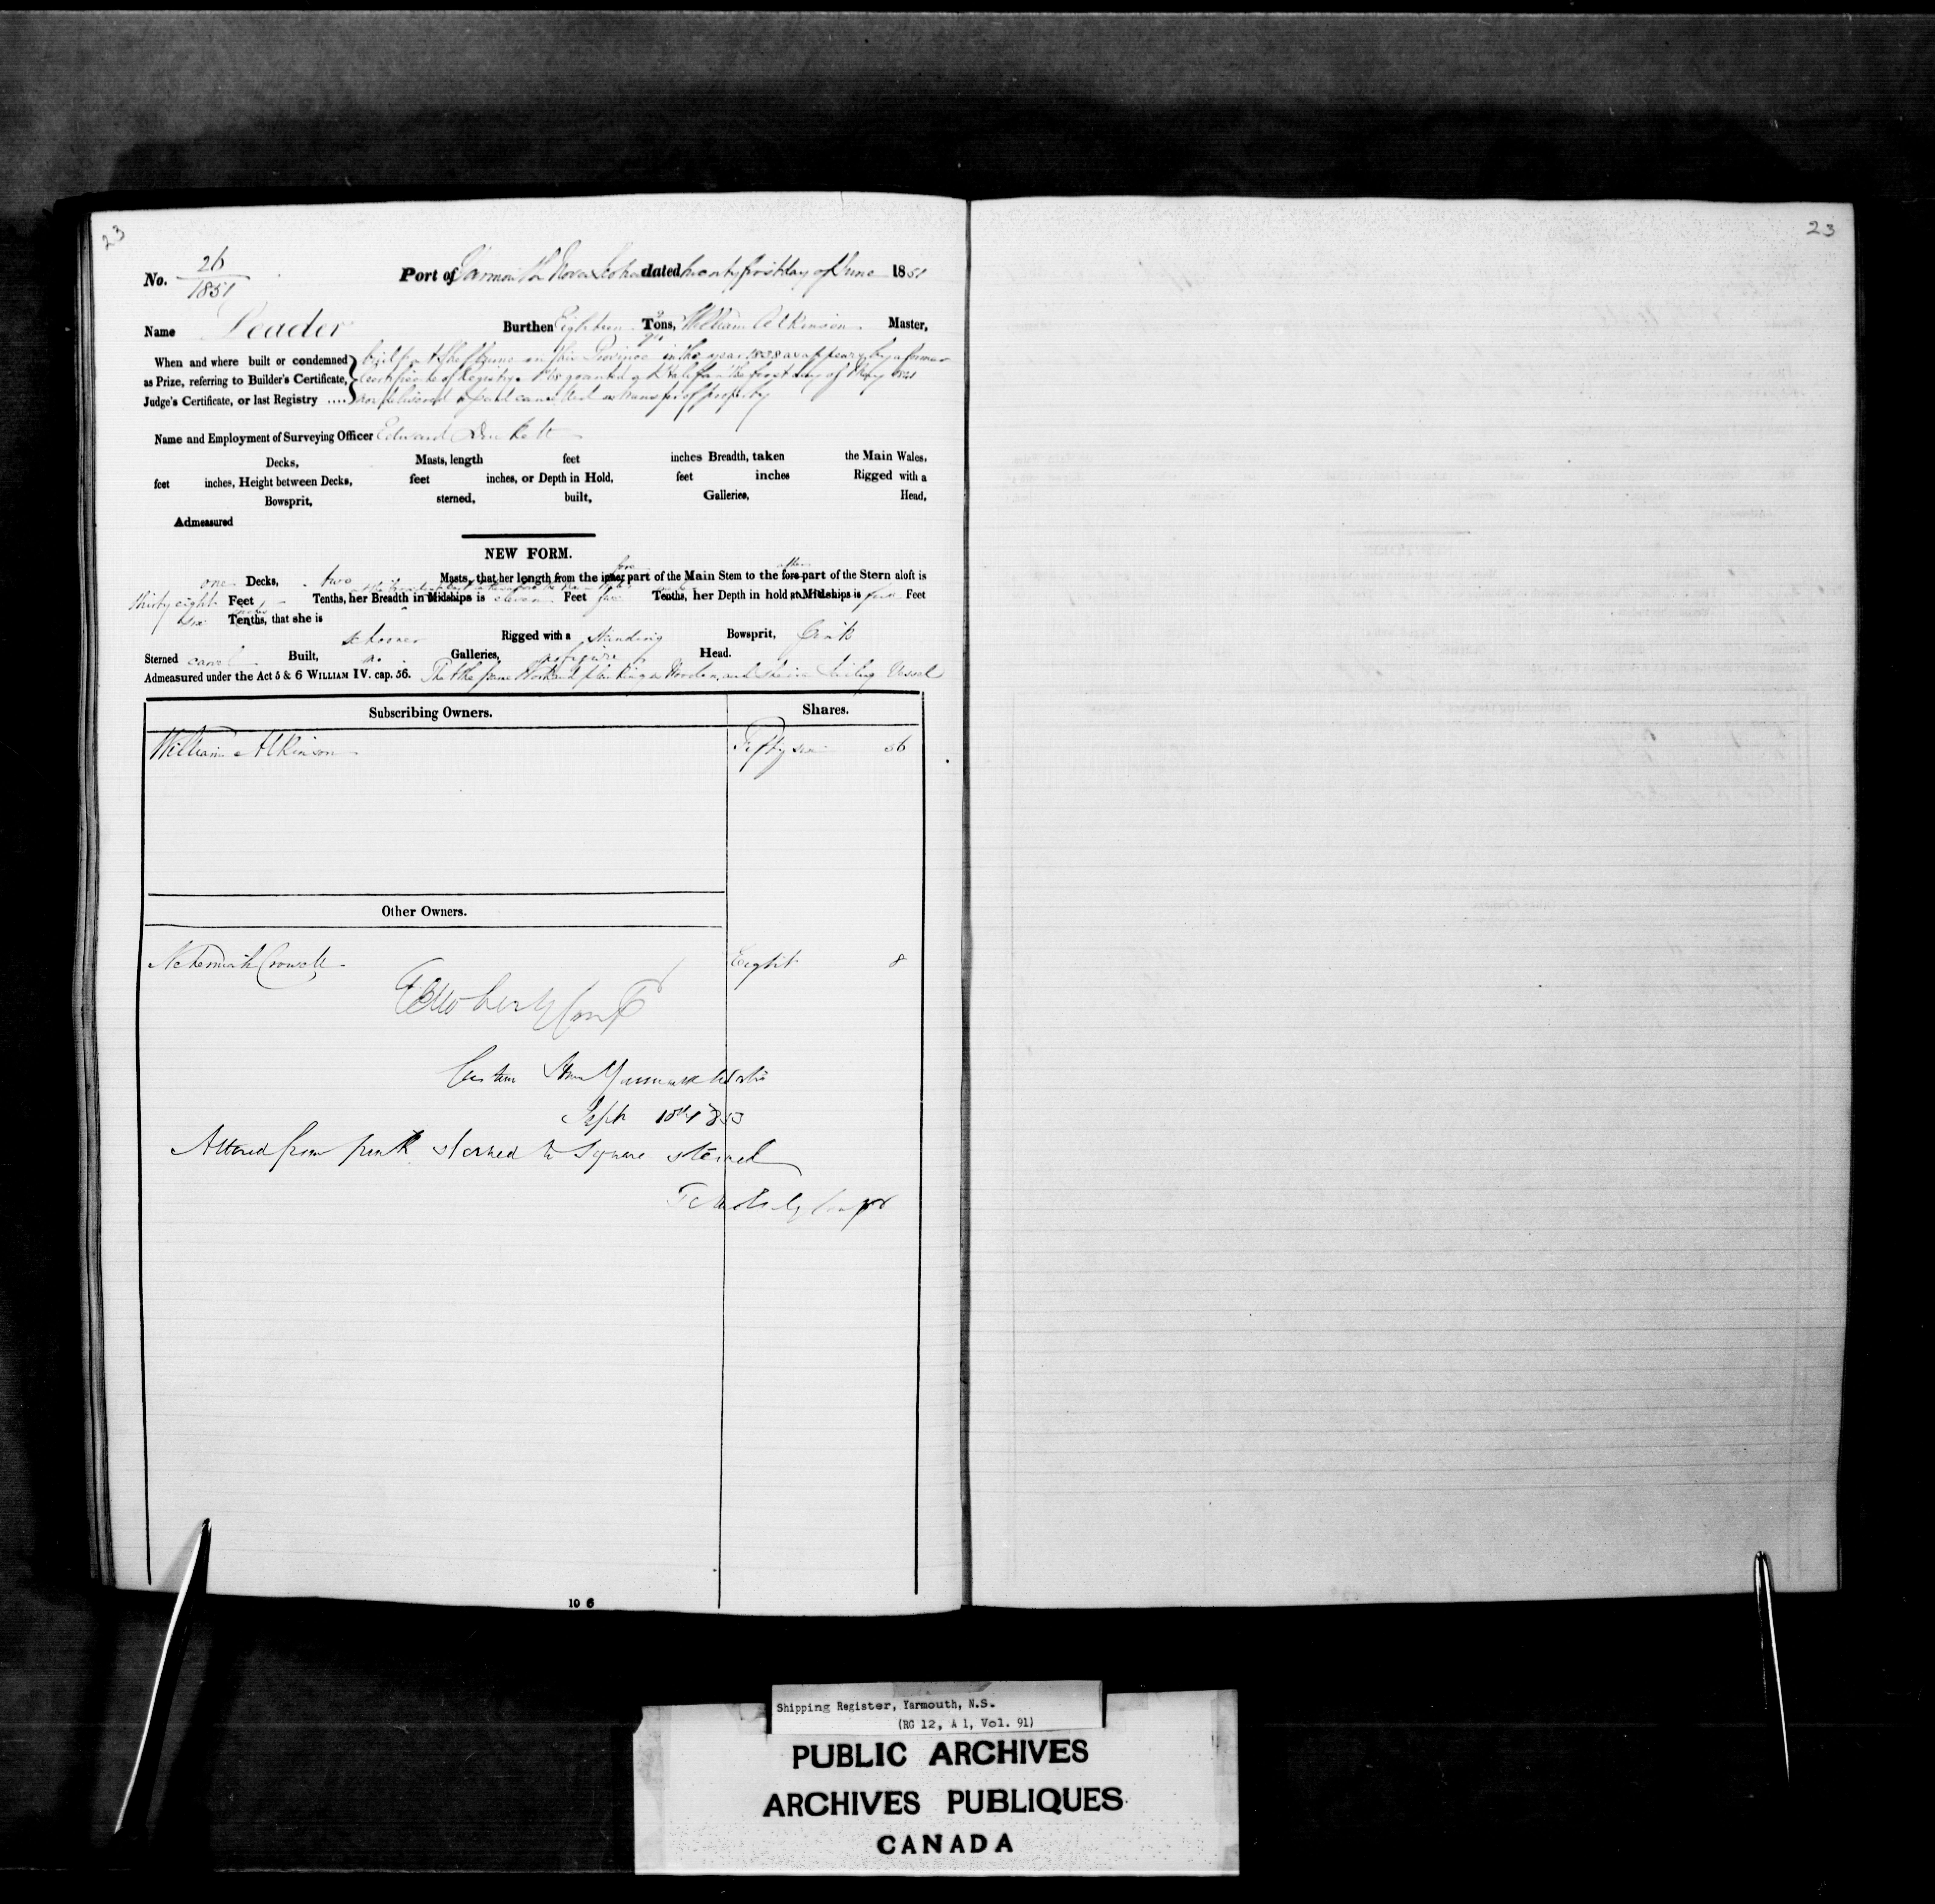 23
23
No. 26/1851 Port of Yarmouth Nova Scotia dated twenty first day of June 1851
Name Leader Burthen Eighteen Tons, William Atkinson Master,
When and where built or condemned
as Prize, referring to Builder's Certificate,
Judge's Certificate, or last Registry ....
built at in this Province in the year 1838 as appears by a former
Certificate of Registry granted at Halifax the first day of May 1841
now delivered up and cancelled transfer of property
Name and Employment of Surveying Officer Edward
Decks, Masts, length feet inches Breadth, taken the Main Wales,
feet inches, Height between Decks, feet inches, or Depth in Hold, feet inches Rigged with a
Bowsprit, sterned, built, Galleries, Head,
Admeasured
NEW FORM.
fore after
one Decks, two Masts, that her length from the inner part of the Main Stem to the fore part of the Stern aloft is
thirty eight Feet Tenths, her Breadth in Midships is eleven Feet five Tenths, her Depth in hold at Midships is Feet
six Tenths, that she is
schooner Rigged with a standing Bowsprit, pink
Sterned carvel Built, no Galleries, no figure Head.
Admeasured under the Act 5 & 6 WILLIAM IV. cap. 56. That the frame work and planking is Wooden, and she is a sailing Vessel
Subscribing Owners. Shares.
William Atkinson Fifty six 56
Other Owners.
Nehemiah Crowell Eight 8
Custom
Sept 10th 1853
Altered from pink sterned to Square sterned
10 6
Shipping Register, Yarmouth, N.S.
(RG 12, A 1, Vol. 91)
PUBLIC ARCHIVES
ARCHIVES PUBLIQUES
CANADA